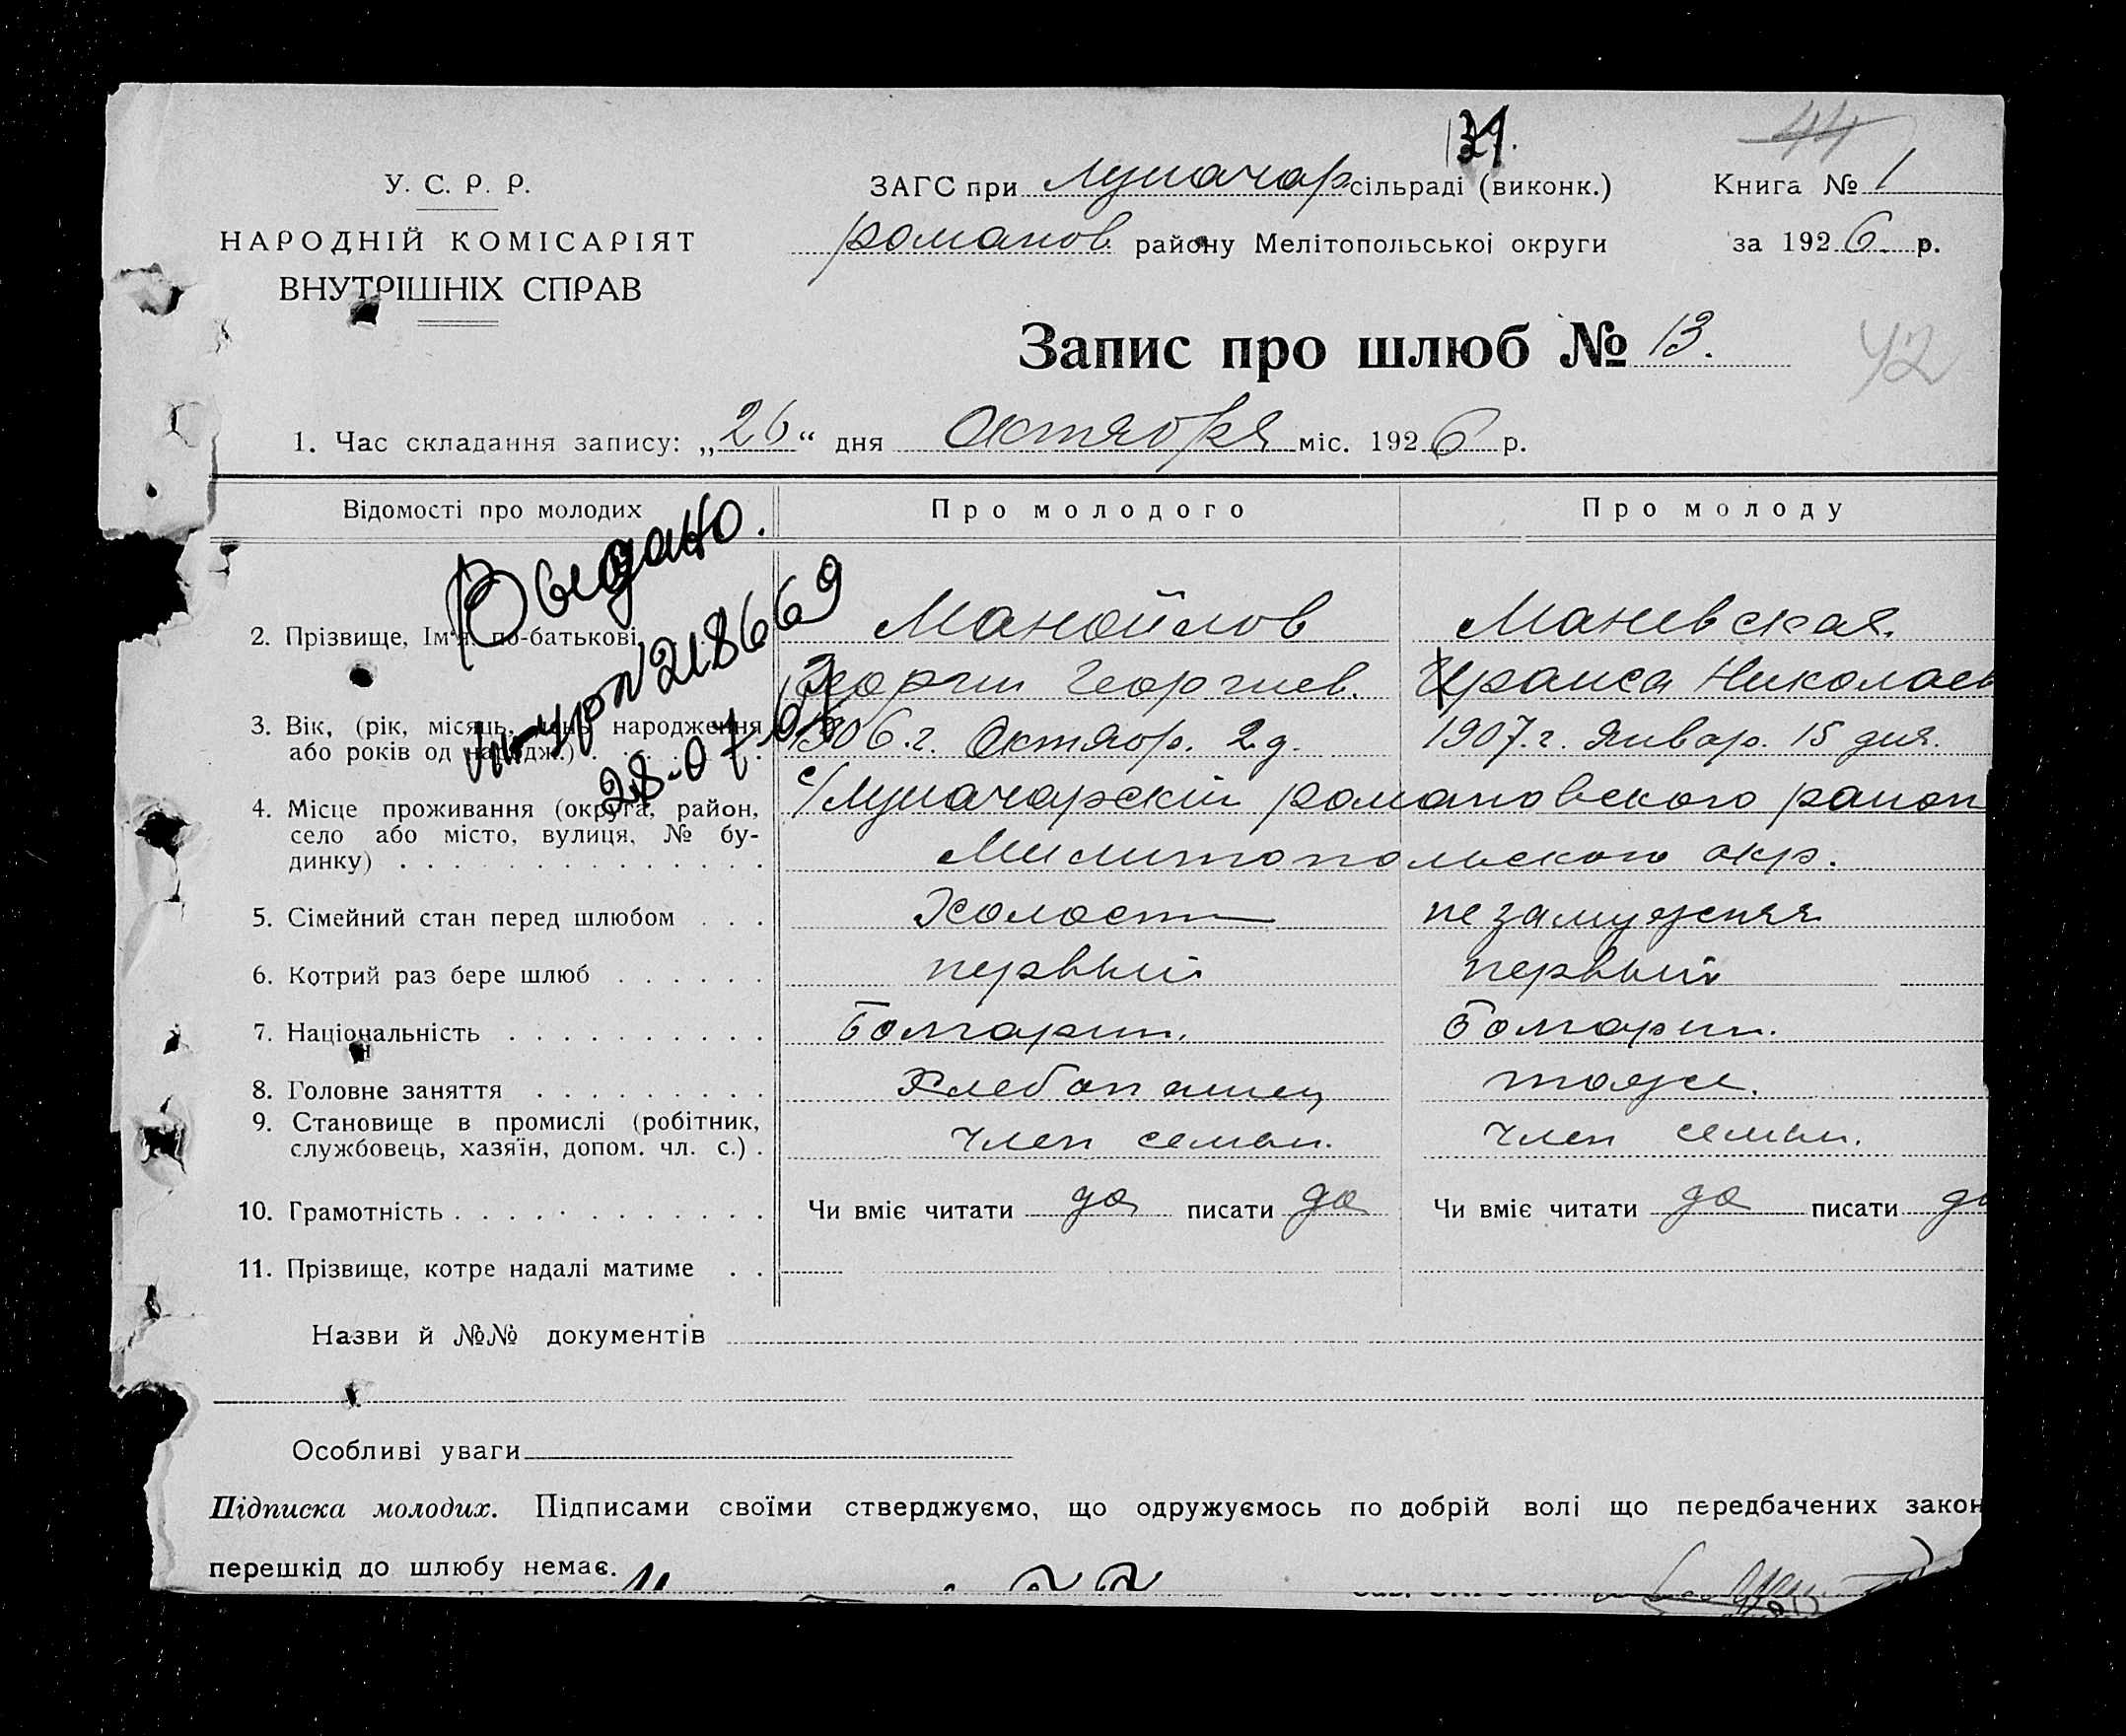 44
31.
У. С. Р. Р.
НАРОДНІЙ КОМІСАРІЯТ
ВНУТРІШНІХ СПРАВ
ЗАГС при Луначар сільраді (виконк.)
Книга № 1
романов. району Мелітопольської округи
за 1926 р.
Запис про шлюб № 13.
42
1. Час складання запису: „26“ дня Октября міс. 1926 р.
Відомості про молодих
Про молодого
Про молоду
Выдано.
N 218669
2. Прізвище, Ім'я, по-батькові
Манойлов
Маневская.
Георгии Георгиев.
Ираиса Николаев
3. Вік, (рік, місяць, день народження
або років од народж.) .
1906.г. Октяор. 2д.
1907.г. Январ. 15 дня.
28-07-
4. Місце проживання (округа, район,
село або місто, вулиця, № бу-
динку) . . . . . . . . . . . . . .
с/Луначарскіи романовского район
Мелитопольского окр.
5. Сімейний стан перед шлюбом . . .
Холост
незамужняя
6. Котрий раз бере шлюб . . . . . .
первыи
первыи
7. Національність . . . . . . . . . .
Болгарин.
Болгарин.
8. Головне заняття . . . . . . . . .
Хлебопашец
тоже.
9. Становище в промислі (робітник,
службовець, хазяїн, допом. чл. с.) .
член семьи.
член семьи.
10. Грамотність . . . . . . . . . . . . .
Чи вміє читати да писати да
Чи вміє читати да писати да
11. Прізвище, котре надалі матиме . .
Назви й №№ документів
Особливі уваги
Підписка молодих. Підписами своїми стверджуємо, що одружуємось по добрій волі що передбачених закон
перешкід до шлюбу немає.